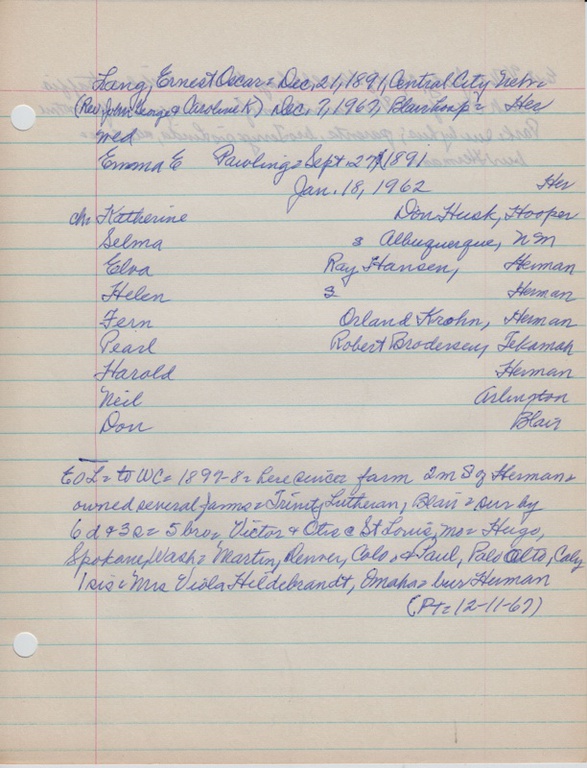 Lang, Ernest Oscar = Dec. 21, 1891, Central City Nebr =
(Rev John George & Caroline K) Dec. 7, 1967, Blair hosp = Her
wed
Emma E Pawling = Sept. 27, 1891
Jan. 18, 1962 Her
ch: Katherine Don Husk, Hooper
Selma s Albuquerque, NM
Elva Ray Hansen, Herman
Helen s Herman
Fern Orland Krohn, Herman
Pearl Robert Brodersen, Tekamah
Harold Herman
Neil Arlington
Don Blair
EOL = to WC = 1897-8 = here since = farm 2 m S of Herman =
owned several farms = Trinity Lutheran, Blair = sur by
6 d & 3 s = 5 bro = Victor & Otis @ St Louis, Mo = Hugo,
Spokane, Wash = Martin, Denver, Colo. & Paul, Palo Alto, Caly
1 sis = Mrs Viola Hildebrandt, Omaha = bur Herman
(PT = 12-11-67)